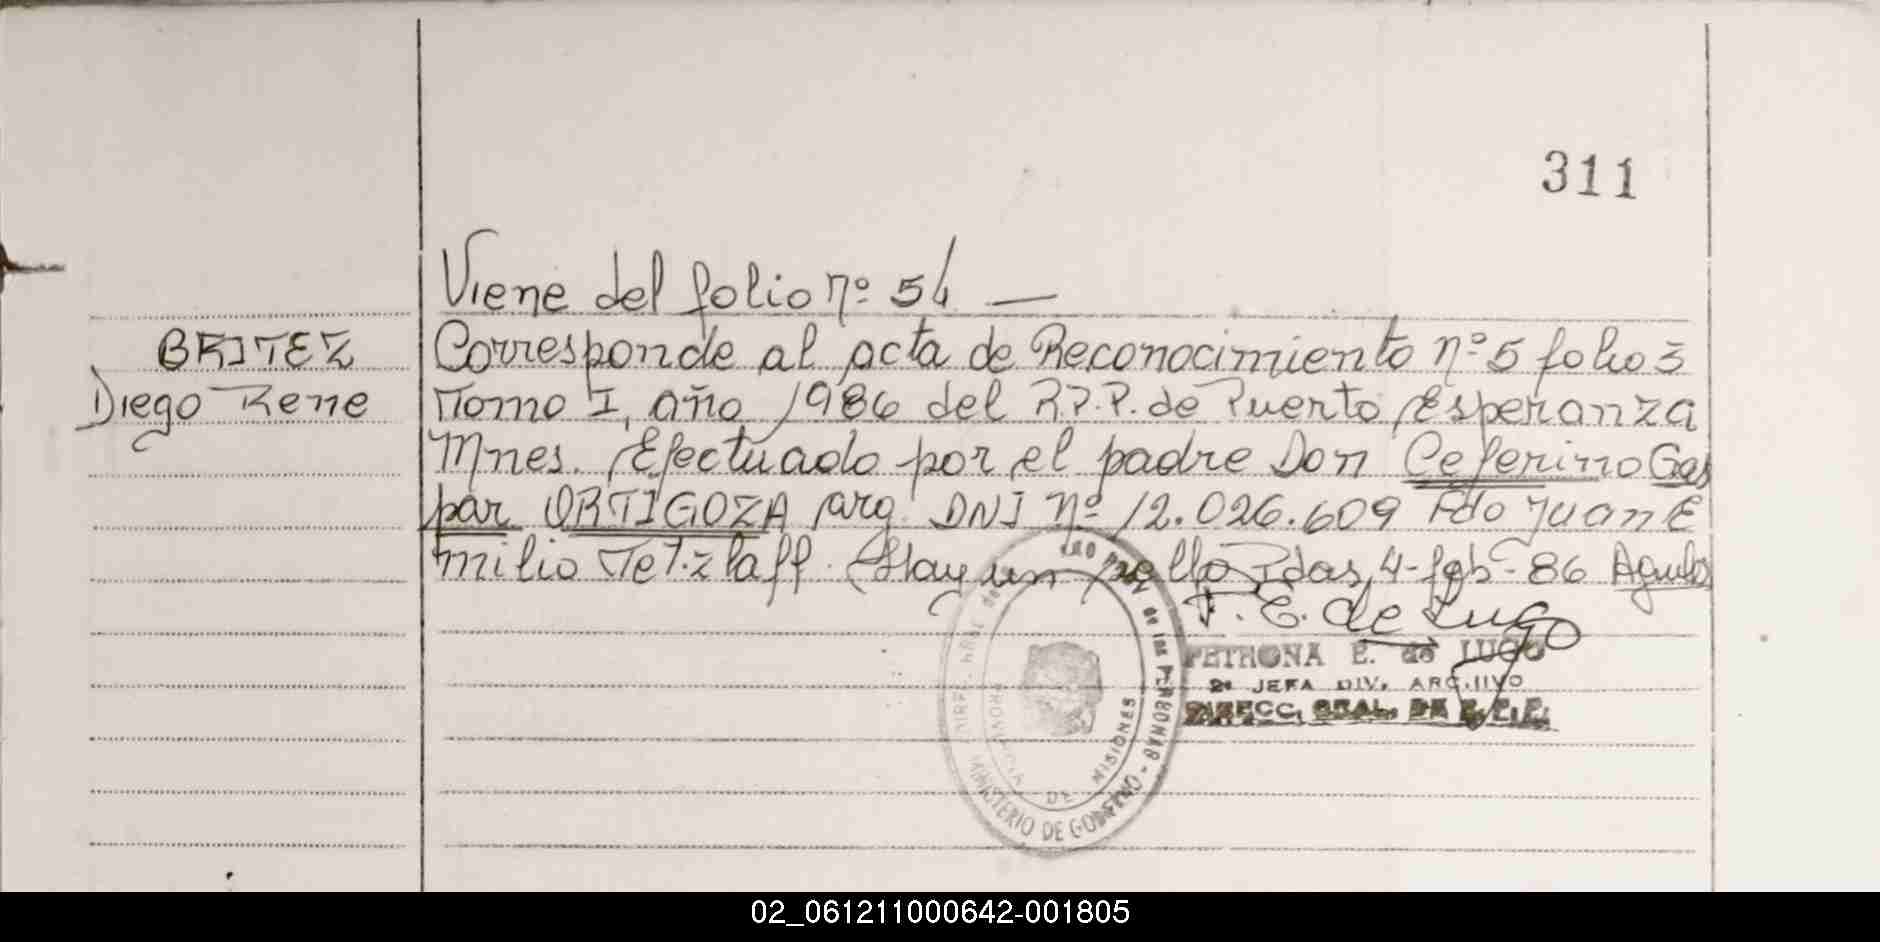 311
Viene del folio nº 54 —
BRITEZ
Diego Rene
Corresponde al acta de Reconocimiento nº 5 folio 3
Tomo I, año 1986 del R.P.P. de Puerto Esperanza
Mnes. Efectuado por el padre Don Ceferino Gas
par ORTIGOZA arg. DNI Nº 12.026.609 Fdo Juan E
milio Tetzlaff. (Hay un sello) Pdas, 4-feb-86
P. E. de Lugo
PETRONA E. de LUGO
2ª JEFA DIV. ARCHIVO
DIRECC. GRAL. DE
de las PERSONAS
PROVINCIA DE MISIONES
MINISTERIO DE GOBIERNO
02_061211000642-001805